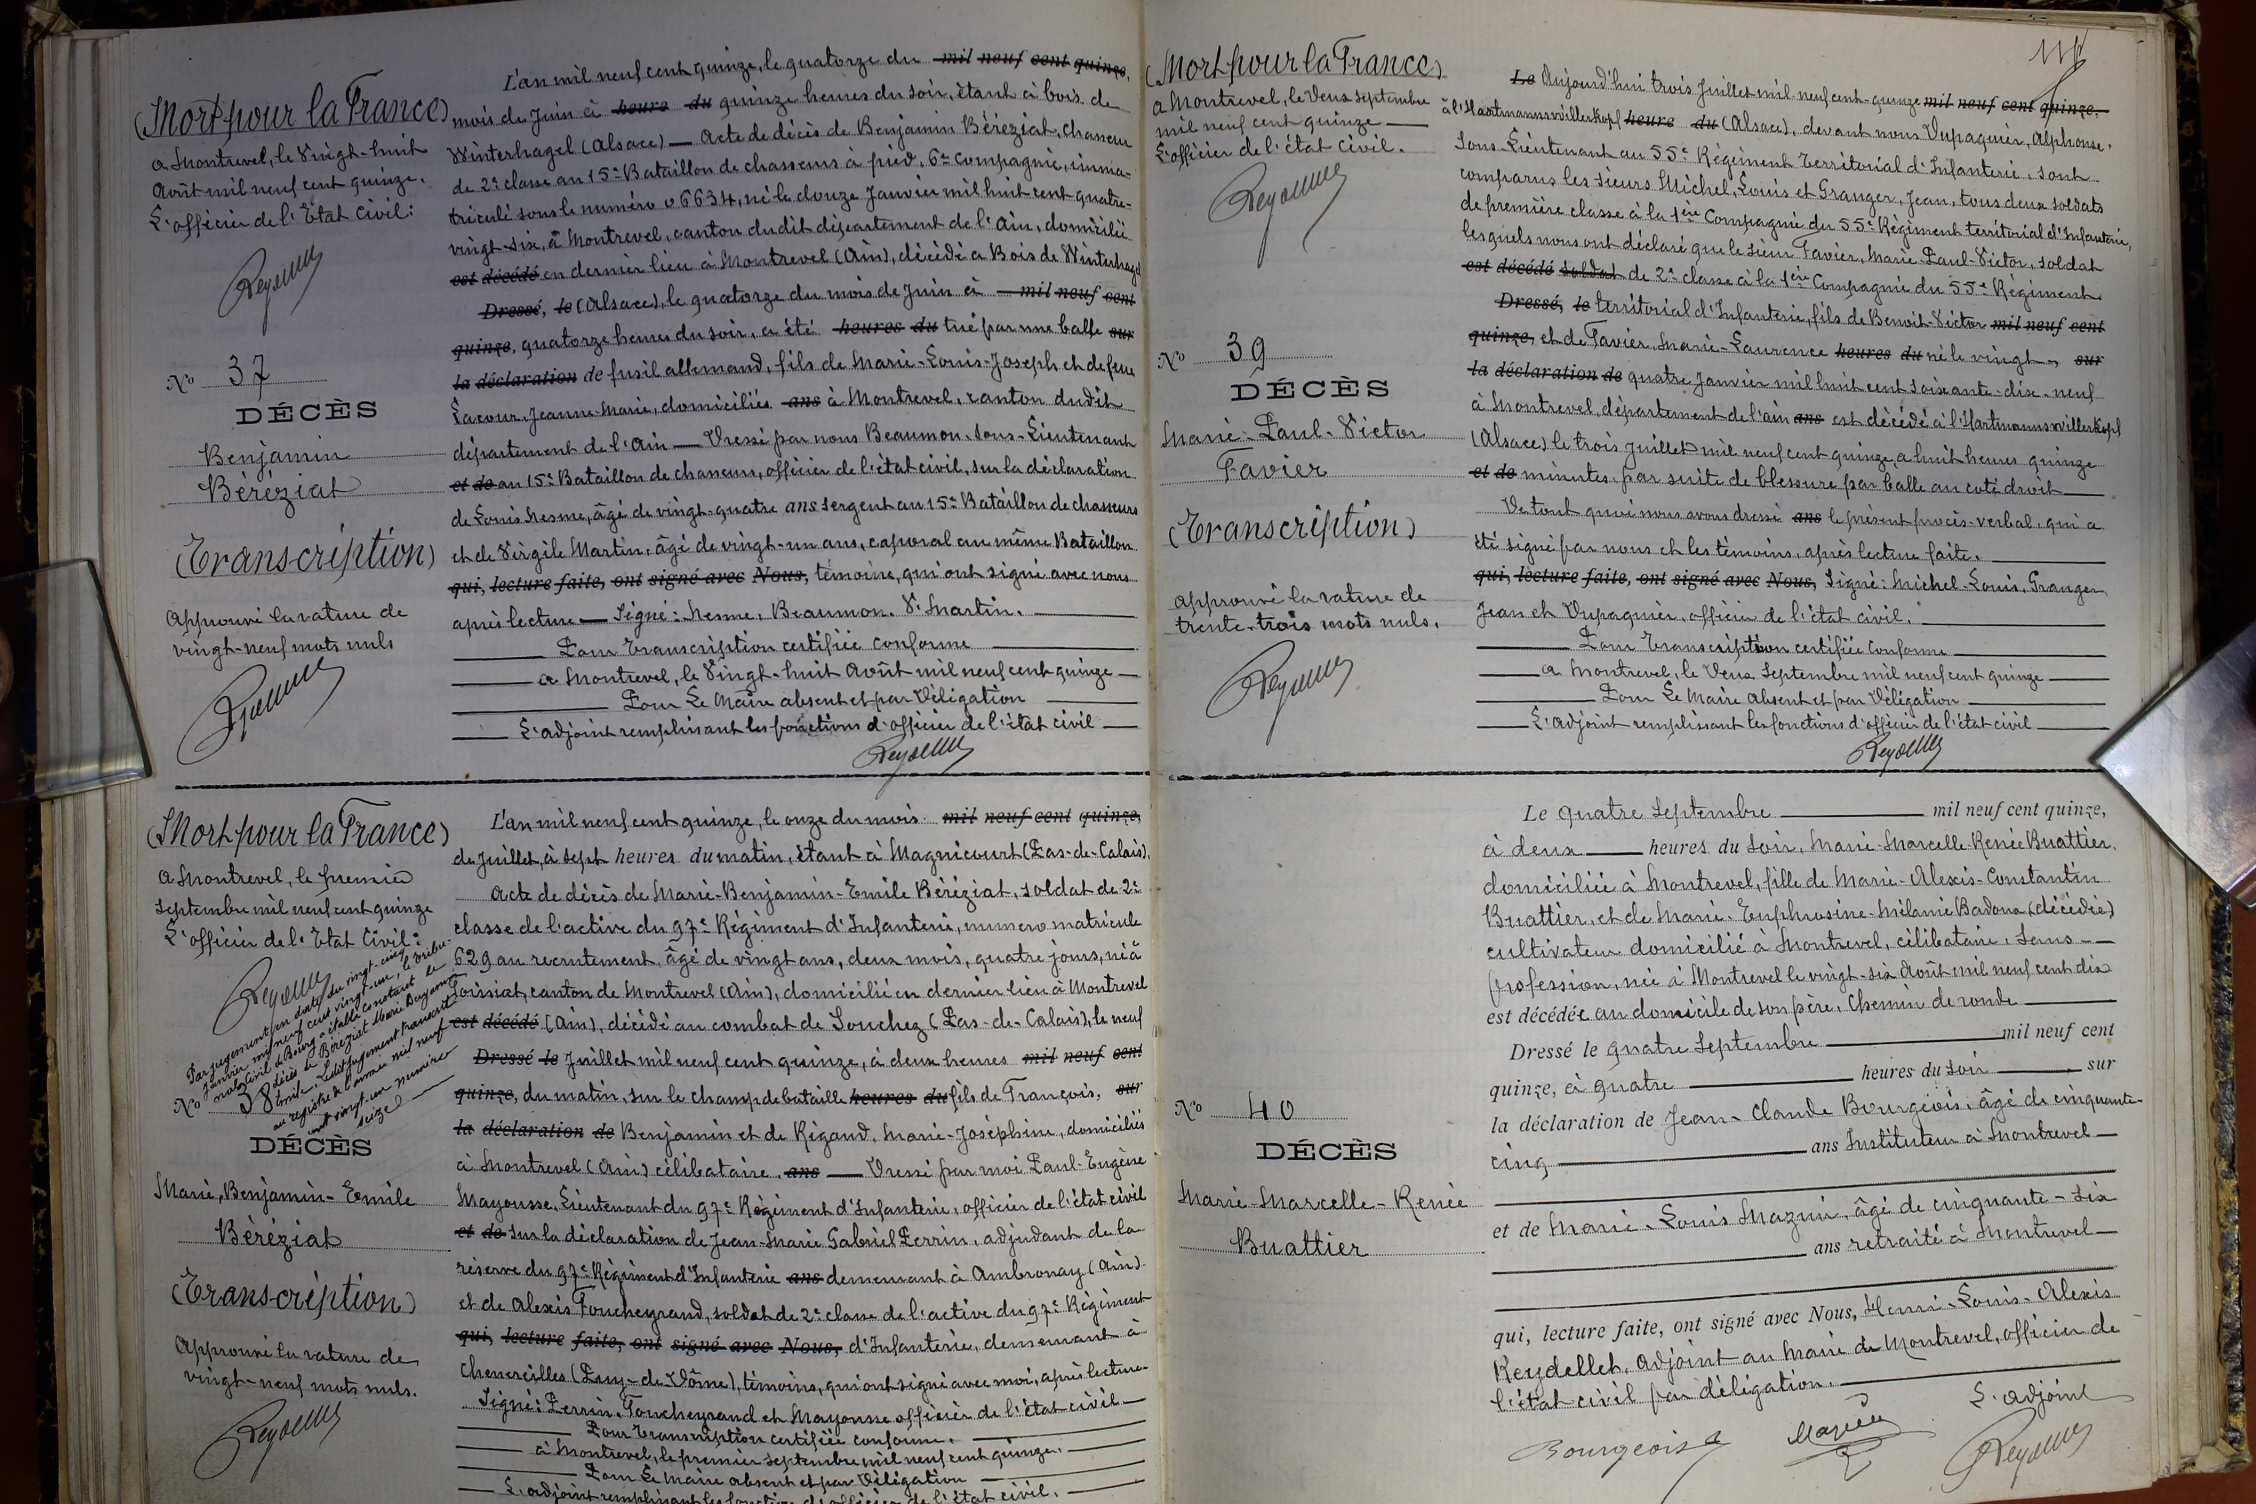 (Mort pour la France)
a Montrevel, le Vingt-huit
Août mil neuf cent quinze.
L'officier de l'Etat Civil:
No 37
DÉCÈS
Benjamin
Béréziat
(Transcription)
Approuvé la rature de
vingt-neuf mots nuls
L'an mil neuf cent quinze, le quatorze du mil neuf cent quinze,
mois de Juin à heure du quinze heures du soir, étant à bois de
Winterhagel (Alsace) — Acte de décès de Benjamin Béréziat, chasseur
de 2e classe au 15e Bataillon de chasseurs à pied, 6e Compagnie, imma-
triculé sous le numéro 06634, né le douze Janvier mil huit cent quatre-
vingt-six, à Montrevel, canton dudit département de l'Ain, domicilié
est décédé en dernier lieu à Montrevel (Ain), décédé a Bois de Winterhagel
Dressé, le (Alsace), le quatorze du mois de Juin à — mil neuf cent
quinze, quatorze heures du soir, a été heures du tué par une balle sur
la déclaration de fusil allemand, fils de Marie-Louis-Joseph et de feue
Lacour, Jeanne-Marie, domiciliés ans à Montrevel, canton dudit
département de l'Ain — Dressé par nous Beaumon, Sous-Lieutenant
et de au 15e Bataillon de chasseurs, officier de l'état civil, sur la déclaration
de Louis Nesme, âgé de vingt-quatre ans sergent au 15e Bataillon de chasseurs
et de Virgile Martin, âgé de vingt-un ans, caporal au même Bataillon
qui, lecture faite, ont signé avec Nous, témoins, qui ont signé avec nous
après lecture — Signé: Nesme, Beaumon. V. Martin.
Pour Transcription certifiée conforme
a Montrevel, le Vingt-huit Août mil neuf cent quinze
Pour Le Maire absent et par Délégation
L'adjoint remplissant les fonctions d'officier de l'état civil
(Mort pour la France)
a Montrevel, le premier
Septembre mil neuf cent quinze
L'officier de l'Etat Civil:
Par jugement en date du vingt-cinq
Janvier mil neuf cent vingt-un, le Tribu-
nal Civil de Bourg a établi constatant le
décès de Béréziat Marie Benjamin
Emile. Ledit jugement transcrit
au registre de l'année mil neuf
cent vingt-un numéro
seize
No 38
DÉCÈS
Marie, Benjamin-Emile
Béréziat
(Transcription)
Approuvé la rature de
vingt-neuf mots nuls.
L'an mil neuf cent quinze, le onze du mois mil neuf cent quinze,
de Juillet, à sept heures du matin, étant à Magnicourt (Pas-de-Calais),
Acte de décès de Marie-Benjamin-Emile Béréziat, soldat de 2e
classe de l'active du 97e Régiment d'Infanterie, numero matricule
629 au recrutement, âgé de vingt ans, deux mois, quatre jours, né à
Foissiat, canton de Montrevel (Ain), domicilié en dernier lieu à Montrevel
est décédé (Ain), décédé au combat de Souchez (Pas-de-Calais), le neuf
Dressé le Juillet mil neuf cent quinze, à deux heures mil neuf cent
quinze, du matin, sur le champ de bataille heures du fils de François, sur
la déclaration de Benjamin et de Rigaud, Marie-Joséphine, domiciliés
à Montrevel (Ain) célibataire. ans — Dressé par moi Paul-Eugène
Mayousse, Lieutenant du 97e Régiment d'Infanterie, officier de l'état civil
et de sur la déclaration de Jean-Marie Gabriel Perrin, adjudant de la
réserve du 97e Régiment d'Infanterie ans demeurant à Ambronay (Ain)
et de Alexis Foucheyrand, soldat de 2e classe de l'active du 97e Régiment
qui, lecture faite, ont signé avec Nous, d'Infanterie, demeurant à
(Puy-de-Dôme), témoins, qui ont signé avec moi, après lecture
Signé: Perrin, Foucheyrand et Mayousse officier de l'état civil
Pour Transcription certifiée conforme.
à Montrevel, le premier Septembre mil neuf cent quinze.
Pour Le Maire absent et par Délégation
L'adjoint remplissant les fonctions d'officier de l'état civil.
(Mort pour la France)
a Montrevel, le Deux septembre
mil neuf cent quinze
L'officier de l'état civil.
No 39
DÉCÈS
Marie-Paul-Victor
Favier
(Transcription)
approuvé la rature de
trente-trois mots nuls.
Le Aujourd'hui trois Juillet mil neuf cent quinze mil neuf cent quinze.
à l'Hartmannswillerkopf heure du (Alsace), devant nous Dupaquier, Alphonse,
Sous-Lieutenant au 55e Régiment Territorial d'Infanterie, sont
comparus les sieurs Michel, Louis et Granger, Jean, tous deux soldats
de première classe à la 1ère Compagnie du 55e Régiment territorial d'Infanterie,
lesquels nous ont déclaré que le sieur Favier, Marie-Paul-Victor, soldat
est décédé soldat de 2e classe à la 1ère Compagnie du 55e Régiment
Dressé, le territorial d'Infanterie, fils de Benoit-Victor mil neuf cent
quinze, et de Favier, Marie-Laurence heures du né le vingt-, sur
la déclaration de quatre Janvier mil huit cent soixante-dix-neuf
à Montrevel, département de l'ain ans est décédé à l'Hartmannswillerkopf
(Alsace) le trois Juillet mil neuf cent quinze, a huit heures quinze
et de minutes, par suite de blessure par balle au coté droit
De tout quoi nous avons dressé ans le présent procès-verbal, qui a
été signé par nous et les témoins, après lecture faite.
qui, lecture faite, ont signé avec Nous, Signé: Michel-Louis, Granger
Jean et Dupaquier, officier de l'état civil.
Pour Transcription certifiée conforme
a Montrevel, le Deux Septembre mil neuf cent quinze
Pour Le Maire absent et par Délégation
L'adjoint remplissant les fonctions d'officier de l'état civil
No 40
DÉCÈS
Marie-Marcelle-Renée
Buattier
Le quatre Septembre mil neuf cent quinze,
à deux heures du Soir, Marie-Marcelle-Renée Buattier,
domiciliée à Montrevel, fille de Marie-Alexis-Constantin
Buattier, et de Marie-Euphrosine-Mélanie Badoux (décédée)
cultivateur domicilié à Montrevel, célibataire, Sans
profession, née à Montrevel le vingt-six Août mil neuf cent dix
est décédée au domicile de son père, Chemin de ronde
Dressé le quatre Septembre mil neuf cent
quinze, à quatre heures du soir sur
la déclaration de Jean-Claude Bourgeois, âgé de cinquante-
cinq ans Instituteur à Montrevel
et de Marie-Louis Mazuir, âgé de cinquante-six
ans retraité à Montrevel
qui, lecture faite, ont signé avec Nous, Henri-Louis-Alexis
Reydellet, adjoint au Maire de Montrevel, officier de
l'état civil par délégation.
L'adjoint
Bourgeois